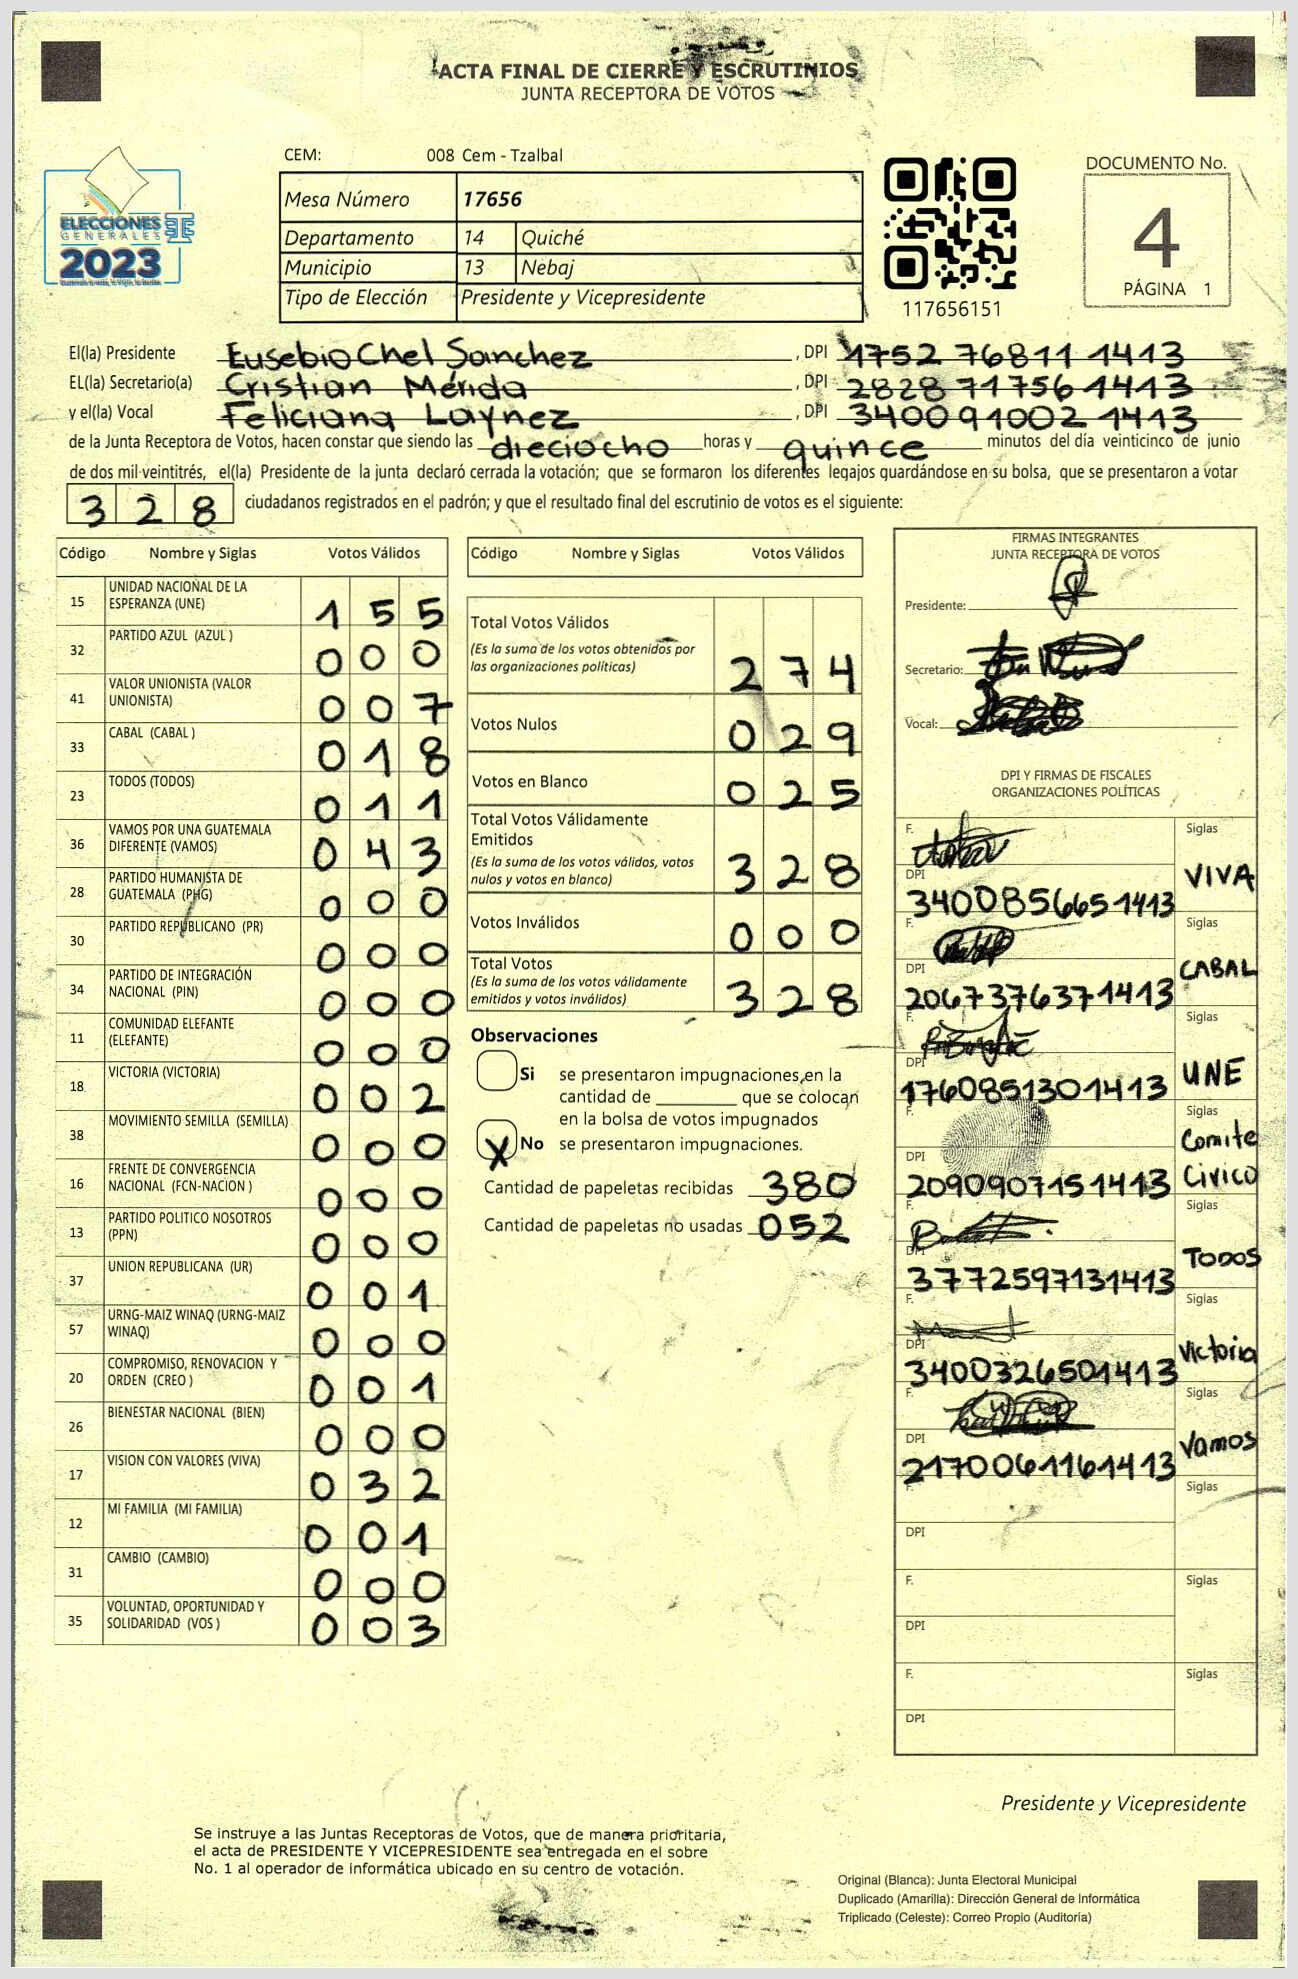 ACTA FINAL DE CIERRE Y ESCRUTINIOS
JUNTA RECEPTORA DE VOTOS
CEM: 008 Cem - Tzalbal
Mesa Número 17656
Departamento 14 Quiché
Municipio 13 Nebaj
Tipo de Elección Presidente y Vicepresidente
ELECCIONES
GENERALES
2023
117656151
DOCUMENTO No.
4
PÁGINA 1
El(la) Presidente Eusebio Chel Sanchez, DPI 1752 76811 1413
EL(la) Secretario(a) Cristian Mérida, DPI 2828 71756 1413
y el(la) Vocal Feliciana Laynez, DPI 3400 91002 1413
de la Junta Receptora de Votos, hacen constar que siendo las dieciocho horas y quince minutos del día veinticinco de junio
de dos mil veintitrés, el(la) Presidente de la junta declaró cerrada la votación; que se formaron los diferentes legajos guardándose en su bolsa, que se presentaron a votar
328 ciudadanos registrados en el padrón; y que el resultado final del escrutinio de votos es el siguiente:
Código Nombre y Siglas Votos Válidos
15 UNIDAD NACIONAL DE LA ESPERANZA (UNE) 155
32 PARTIDO AZUL (AZUL ) 000
41 VALOR UNIONISTA (VALOR UNIONISTA) 007
33 CABAL (CABAL ) 018
23 TODOS (TODOS) 011
36 VAMOS POR UNA GUATEMALA DIFERENTE (VAMOS) 043
28 PARTIDO HUMANISTA DE GUATEMALA (PHG) 000
30 PARTIDO REPUBLICANO (PR) 000
34 PARTIDO DE INTEGRACIÓN NACIONAL (PIN) 000
11 COMUNIDAD ELEFANTE (ELEFANTE) 000
18 VICTORIA (VICTORIA) 002
38 MOVIMIENTO SEMILLA (SEMILLA) 000
16 FRENTE DE CONVERGENCIA NACIONAL (FCN-NACION ) 000
13 PARTIDO POLITICO NOSOTROS (PPN) 000
37 UNION REPUBLICANA (UR) 001
57 URNG-MAIZ WINAQ (URNG-MAIZ WINAQ) 000
20 COMPROMISO, RENOVACION Y ORDEN (CREO ) 001
26 BIENESTAR NACIONAL (BIEN) 000
17 VISION CON VALORES (VIVA) 032
12 MI FAMILIA (MI FAMILIA) 001
31 CAMBIO (CAMBIO) 000
35 VOLUNTAD, OPORTUNIDAD Y SOLIDARIDAD (VOS ) 003
Código Nombre y Siglas Votos Válidos
Total Votos Válidos 274
(Es la suma de los votos obtenidos por
las organizaciones políticas)
Votos Nulos 029
Votos en Blanco 025
Total Votos Válidamente
Emitidos 328
(Es la suma de los votos válidos, votos
nulos y votos en blanco)
Votos Inválidos 000
Total Votos 328
(Es la suma de los votos válidamente
emitidos y votos inválidos)
Observaciones
Si se presentaron impugnaciones,en la
cantidad de ________ que se colocan
en la bolsa de votos impugnados
X No se presentaron impugnaciones.
Cantidad de papeletas recibidas 380
Cantidad de papeletas no usadas 052
FIRMAS INTEGRANTES
JUNTA RECEPTORA DE VOTOS
Presidente:
Secretario:
Vocal:
DPI Y FIRMAS DE FISCALES
ORGANIZACIONES POLÍTICAS
F. Siglas
DPI VIVA
3400856651413
F. Siglas
DPI CABAL
2067376371413
F. Siglas
DPI UNE
1760851301413
F. Siglas
DPI Comite Civico
2090907151413
F. Siglas
DPI TODOS
3772597131413
F. Siglas
DPI Victoria
3400326501413
F. Siglas
DPI Vamos
2170061161413
F. Siglas
DPI
F. Siglas
DPI
F. Siglas
DPI
Presidente y Vicepresidente
Se instruye a las Juntas Receptoras de Votos, que de manera prioritaria,
el acta de PRESIDENTE Y VICEPRESIDENTE sea entregada en el sobre
No. 1 al operador de informática ubicado en su centro de votación.
Original (Blanca): Junta Electoral Municipal
Duplicado (Amarilla): Dirección General de Informática
Triplicado (Celeste): Correo Propio (Auditoría)